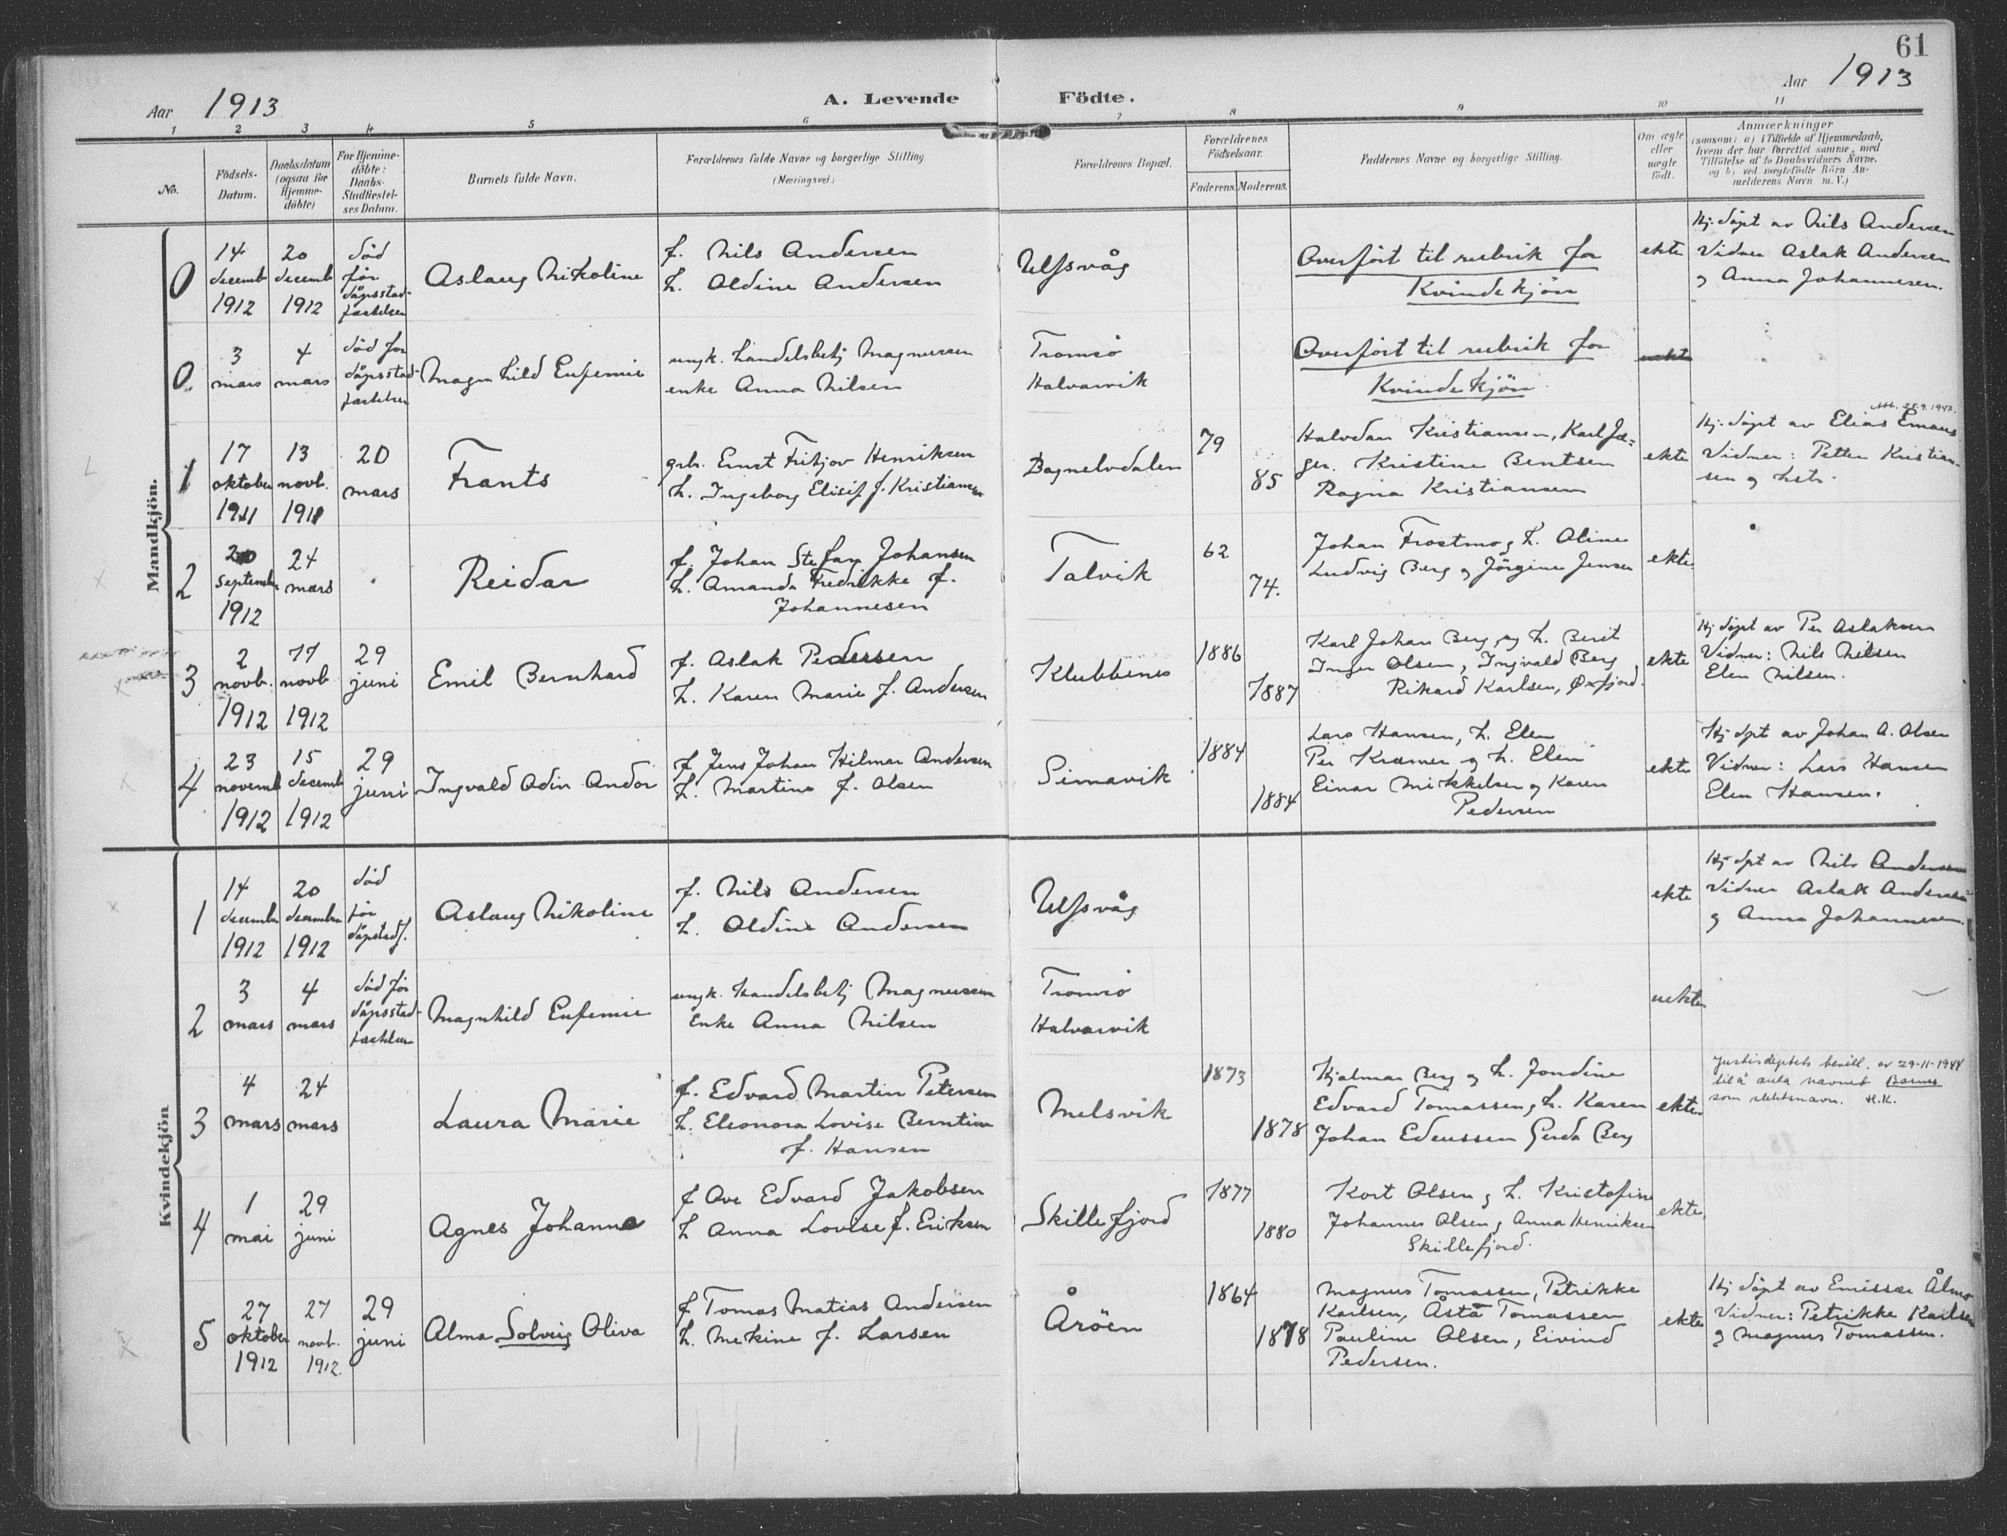 61
Aar 1913
A. Levende Födte.
Aar 1913
1 2 3 4 5 6 7 8 9 10 11
No.
Födsels-Datum.
Daabsdatum (ogsaa for Hjemme-döbte)
For Hjemme-döbte: Daabs-Stadfæstel-ses Datum.
Barnets fulde Navn.
Forældrenes fulde Navne og borgerlige Stilling
(Næringsvei.)
Forældrenes Bopæl.
Forældrenes Födselsaar.
Faderens. Moderens.
Faddernes Navne og borgerlige Stilling.
Om ægte eller uægte födt.
Anmærkninger
(saasom: a) i Tilfælde af Hjemmedaab,
hvem der har forrettet samme, med
Tilföielse af to Daabsvidners Navne.
og b) ved uægtefödte Börn An-
melderens Navn m. V.)
Mandkjön.
0
14 decemb 1912
20 decemb 1912
död før dåpsstad-festelsen
Aslaug Nikoline
f. Nils Andersen
h. Oldine Andersen
Ulfsvåg
Overført til rubrik for
Kvindekjön
ekte
Hj. döpt av Nils Andersen
Vidner Aslak Andersen
og Anna Johannesen.
0.
3 mars
4 mars
död før dåpsstad-festelsen
Magnhild Eufemie
ungk. handelsbetj Magnussen
enke Anna Nilsen
Tromsö
Halvarvik
Overført til rubrik for
Kvindekjön.
uekte
1
17 oktober 1911
13 novb. 1911
20 mars
Frants
grb. Ernst Fritjov Henriksen
h. Ingeborg Elisif f. Kristiansen
Bognelvdalen
79
85
Halvdan Kristiansen, Karl Jæ-
ger. Kristine Bentsen
Ragna Kristiansen
ekte
28.9.1947.
Hj. döpt av Elias Emaus
Vidner: Petter Kristian-
sen og hst.
2
20 septembr 1912
24 mars
Reidar
f. Johan Stefan Johansen
h. Amanda Fredrikke f.
Johannesen
Talvik
62
74.
Johan Frostmo og h. Oline
Ludvig Berg og Jörgine Jensen
ekte
3
2 novb. 1912
17 novb 1912
29 juni
Emil Bernhard
f. Aslak Pedersen
h. Karen Marie f. Andersen
Klubbenes
1886
1887
Karl Johan Berg, og h. Berit
Inger Olsen, Ingvald Berg
Rikard Karlsen, Øxfjord.
ekte
Hj döpt av Per Aslaksen
Vidner: Nils Nilsen
Elen Nilsen.
4
23 novemb 1912
15 decemb 1912
29 juni
Ingvald Odin Andor
f. Jens Johan Hilmar Andersen
h. Martine f. Olsen
Simavik
1884
1884
Lars Hansen, h. Elen
Per Kramer og h. Elen
Einar Mikkelsen og Karen
Pedersen
ekte
Hj dpt av Johan A. Olsen
Vidner: Lars Hansen
Elen Hansen.
Kvindekjön
1
14 decembr 1912
20 decembr 1912
död før dåpstadf.
Aslaug Nikoline
f. Nils Andersen
h. Oldine Andersen
Ulfsvåg
ekte
Hj dpt av Nils Andersen
Vidner Aslak Andersen
og Anna Johannesen.
2
3 mars
4 mars
död før dåpsstad-festelsen
Magnhild Eufemie
ungk. Handelsbetj Magnussen
Enke Anna Nilsen
Tromsö
Halvarvik
uekte
3
4 mars
24 mars
Laura Marie
f. Edvard Martin Petersen
h. Eleonora Lovise Berntine
f. Hansen
Melsvik
1873
1878
Hjalmar Berg og h. Jondine
Edvard Tomassen, h. Karen
Johan Edeussen Gerda Berg
ekte
Justisdeptets bevill. av 29-11-1944
til å anta navnet Barnes
som slektsnavn. H.K.
4
1 mai
29 juni
Agnes Johanne
f Ove Edvard Jakobsen
h Anna Lovise f. Eriksen
Skillefjord
1877
1880
Kort Olsen og h. Kristofine
Johannes Olsen og Anna Henriksen
Skillefjord.
ekte.
5
27 oktober 1912
27 novb. 1912.
29 juni
Alma Solveig Oliva
f Tomas Matias Andersen
h. Mekine f. Larsen
Åröen
1864
1878
Magnus Tomassen, Petrikke
Karlsen, Åsta Tomassen
Pauline Olsen, Eivind
Pedersen.
ekte
Hj döpt av Emissær Ålmo
Vidner: Petrikke Karlsen
og Magnus Tomassen.